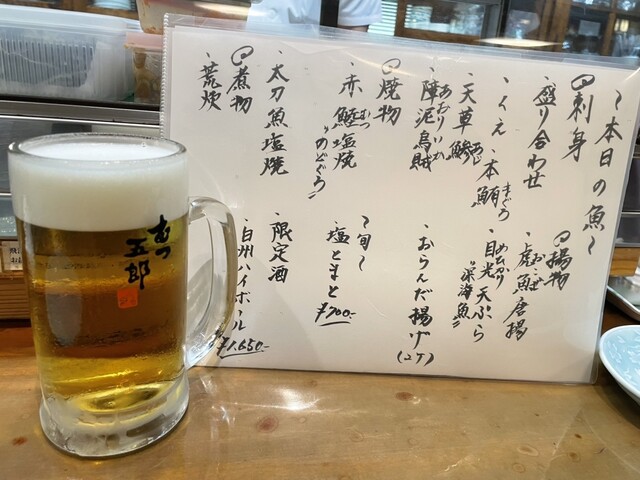 〜本日の魚〜
刺身
・盛り合わせ
・くえ・本鮪
まぐろ
・天草鯵
あじ
・障泥烏賊
あおりいか
焼物
・赤鯥塩焼
むつ
"のどぐろ"
・太刀魚塩焼
煮物
・荒炊
揚物
・虎魚唐揚
おこぜ
・目光天ぷら
めひかり
"深海魚"
・おらんだ揚げ(2ケ)
〜旬〜
・塩とまと
¥700-
・限定酒
・白州ハイボール
¥1.650-
五郎